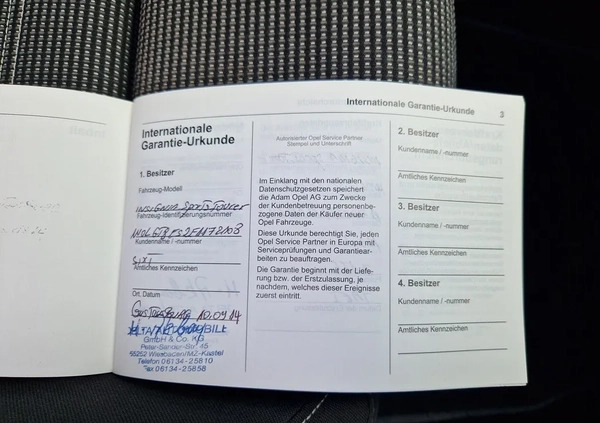 Internationale Garantie-Urkunde 3
Internationale
Garantie-Urkunde
1. Besitzer
Fahrzeug-Modell
INSIGNIA SPORTS TOURER
Fahrzeug-Identifizierungsnummer
Kundenname / -nummer
SIXT
Amtliches Kennzeichen
Ort, Datum
GUSTAVSBURG 10.09.14
GmbH & Co. KG
Peter-Sander-Str. 45
55252 Wiesbaden/MZ-Kastel
Telefon 06134-25810
Fax 06134-25858
Autorisierter Opel Service Partner
Stempel und Unterschrift
Im Einklang mit den nationalen
Datenschutzgesetzen speichert
die Adam Opel AG zum Zwecke
der Kundenbetreuung personenbe-
zogene Daten der Käufer neuer
Opel Fahrzeuge.
Diese Urkunde berechtigt Sie, jeden
Opel Service Partner in Europa mit
Serviceprüfungen und Garantiear-
beiten zu beauftragen.
Die Garantie beginnt mit der Liefe-
rung bzw. der Erstzulassung, je
nachdem, welches dieser Ereignisse
zuerst eintritt.
2. Besitzer
Kundenname / -nummer
Amtliches Kennzeichen
3. Besitzer
Kundenname / -nummer
Amtliches Kennzeichen
4. Besitzer
Kundenname / -nummer
Amtliches Kennzeichen